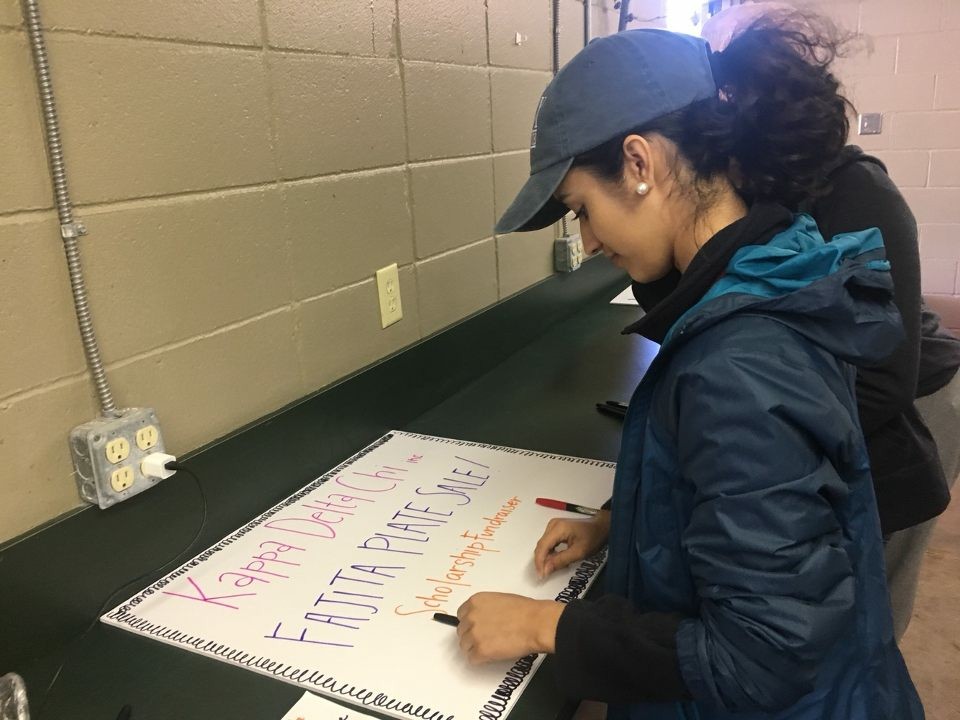 Kappa Delta Chi inc
FAJITA PLATE SALE!
Scholarship Fundraiser